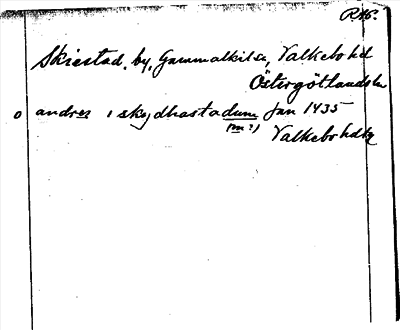 RAP.
Skiestad, by, Gammalkil sn, Valkebo hd
Östergötlands ln
o andres i skydhastadum Jan 1435
(m?)
Valkebo hdkg